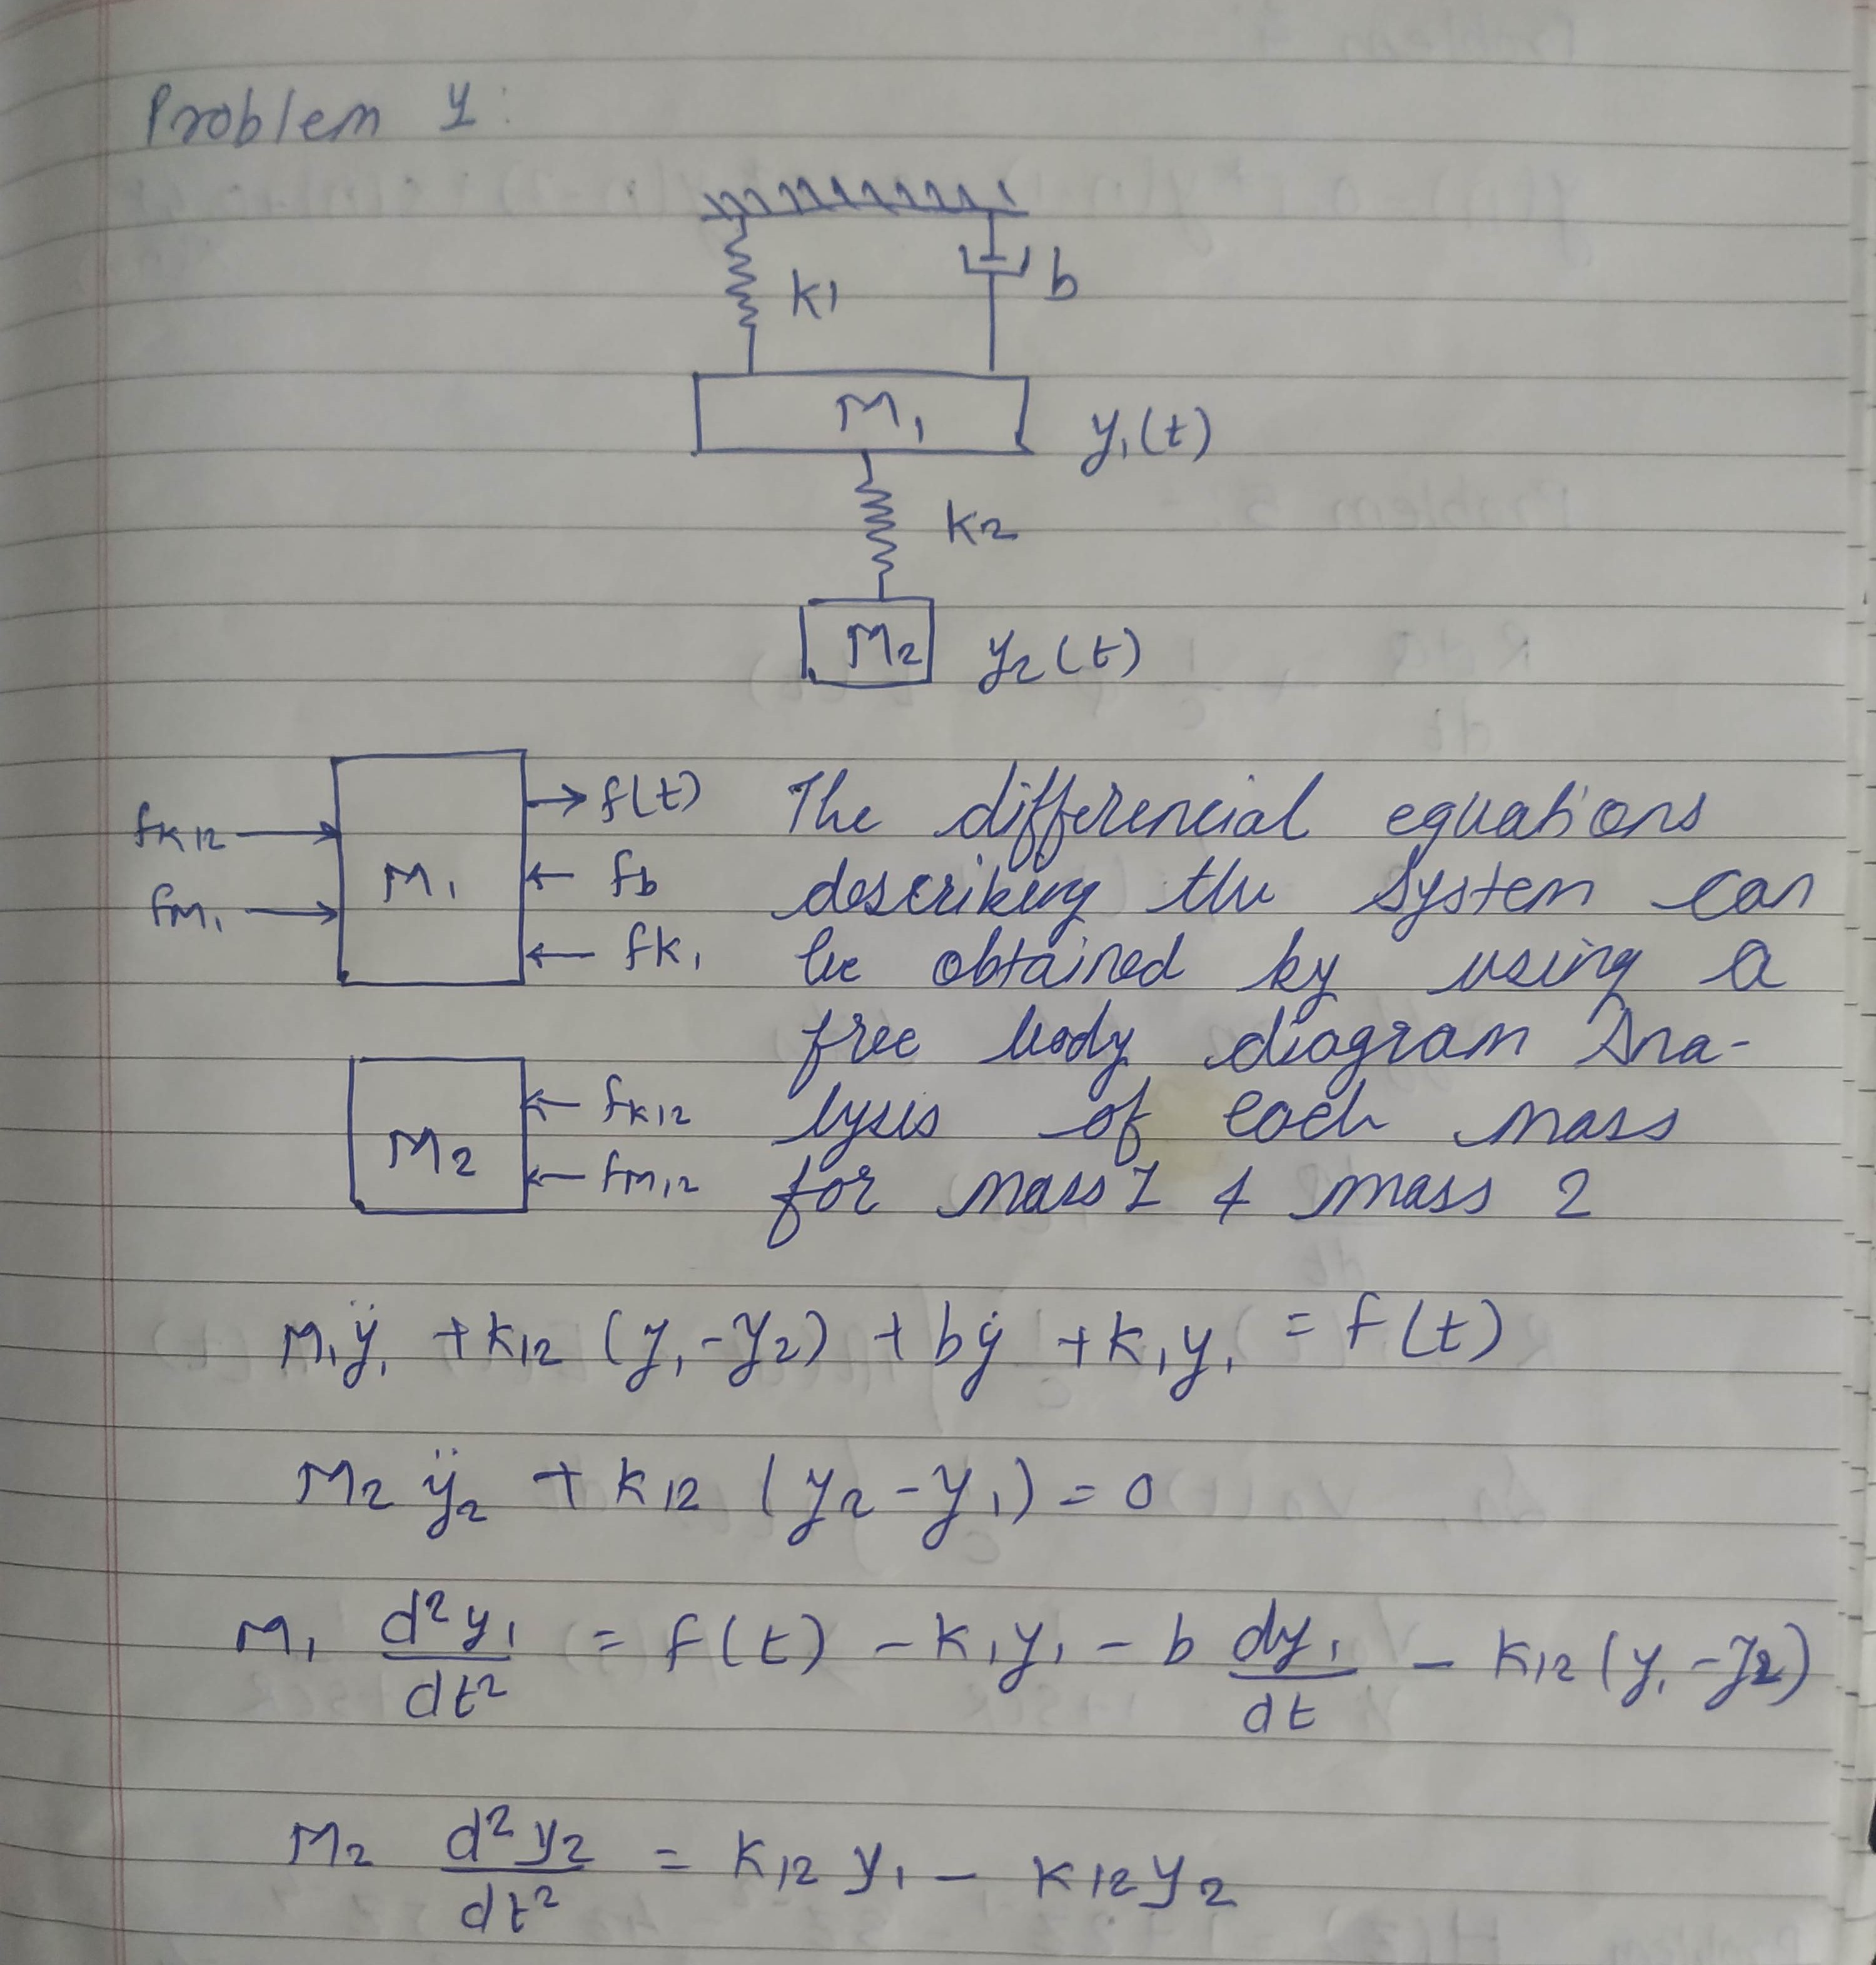 Problem 1:
k1
b
M₁
y₁(t)
k2
M2
y2(t)
fk12
fM₁
M₁
f(t)
fb
fk₁
The differencial equations
describing the system can
be obtained by using a
free body diagram Ana-
lysis of each mass
for mass 1 & mass 2
M2
fk12
fM12
M₁ÿ₁ + k12 (y₁-y2) + bẏ + k₁y₁ = f(t)
M2 ÿ2 + k12 (y2-y₁) = 0
M₁ d²y₁/dt² = f(t) - k₁y₁ - b dy₁/dt - k12 (y₁-y2)
M2 d²y2/dt² = k12 y₁ - k12 y2